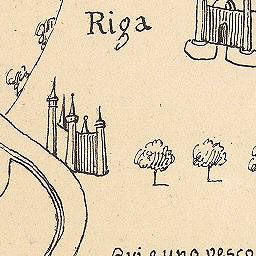 Riga
Qui e una vesco